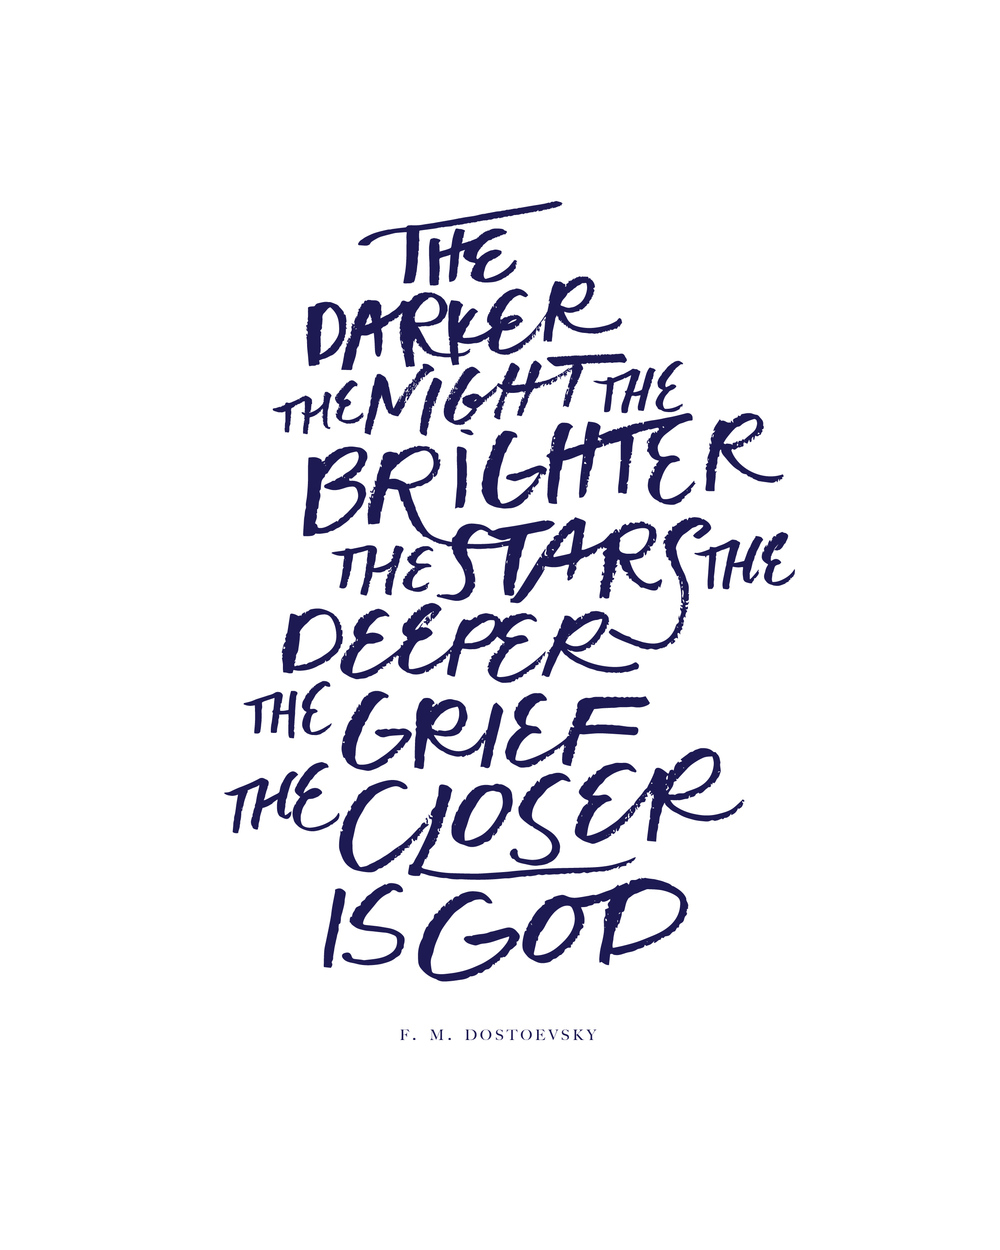 THE
DARKER
THE NIGHT THE
BRiGHTER
THE STARS THE
DEEPER
THE GRIEF
THE CLOSER
IS GOD
F. M. DOSTOEVSKY